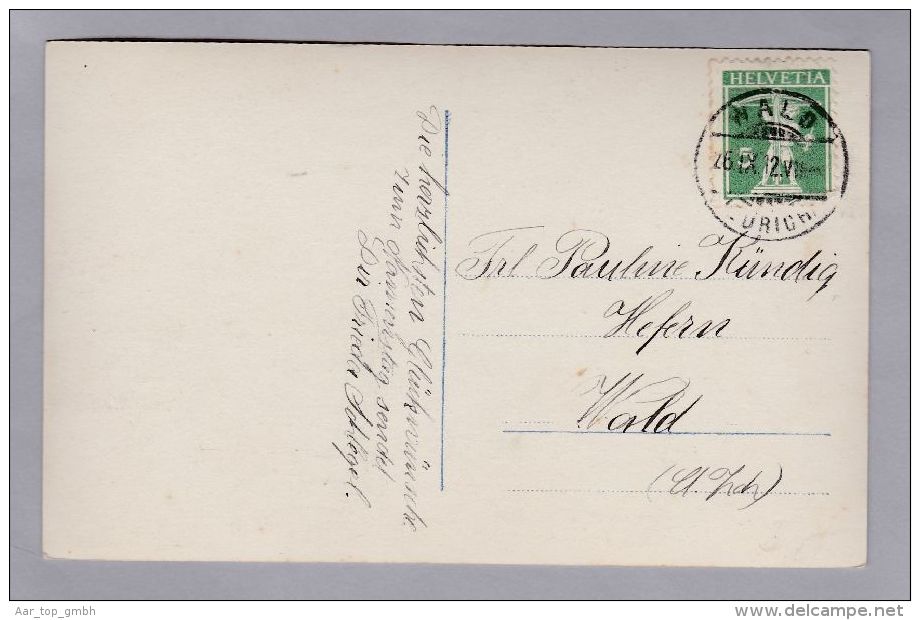 Die herzlichsten Glückwünsche
zum Namenstag sendet
Dir Frieda Schlegel.
HELVETIA
5
WALD
26.IX.12.VII
ZÜRICH
Frl Pauline Kündig
Hefern
Wald
(Ct Zch)
Aar_top_gmbh
www.delcampe.net